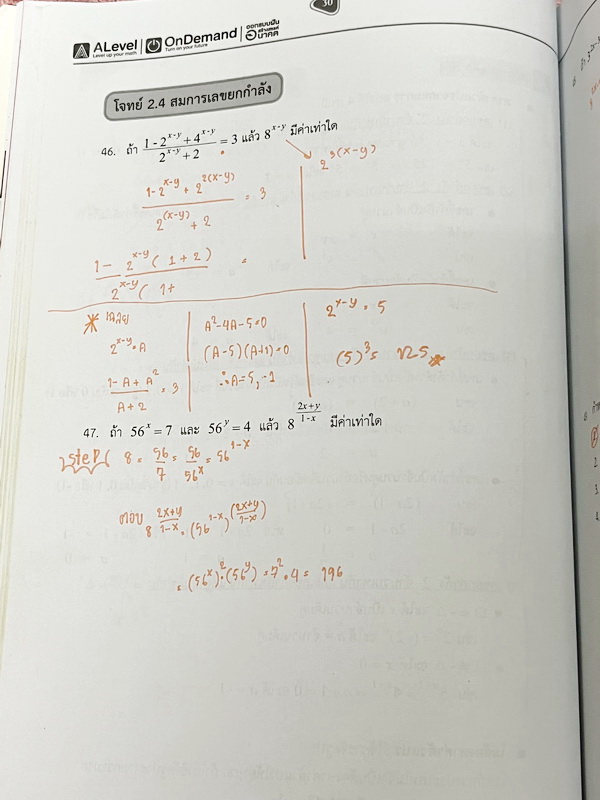 30
ALevel
Level up your math
OnDemand
Turn on your future
ออกแบบฝัน
สร้างสรรค์
อนาคต
โจทย์ 2.4 สมการเลขยกกำลัง
46. ถ้า (1 - 2^(x-y) + 4^(x-y))/(2^(x-y) + 2) = 3 แล้ว 8^(x-y) มีค่าเท่าใด
2^3(x-y)
(1-2^(x-y) + 2^2(x-y))/(2^(x-y) + 2) = 3
1 - 2^(x-y) ( 1 + 2) =
2^(x-y) ( 1+
เฉลย
2^(x-y) = A
(1-A + A^2)/(A+2) = 3
A^2 - 4A - 5 = 0
(A-5)(A+1) = 0
∴A = 5, -1
2^(x-y) = 5
(5)^3 = 125
47. ถ้า 56^x = 7 และ 56^y = 4 แล้ว 8^((2x+y)/(1-x)) มีค่าเท่าใด
Step 8 = 56/7 = 56/56^x = 56^(1-x)
ตอบ 8^((2x+y)/(1-x)) = (56^(1-x))^((2x+y)/(1-x))
= (56^x)^2 · (56^y) = 7^2 · 4 = 196